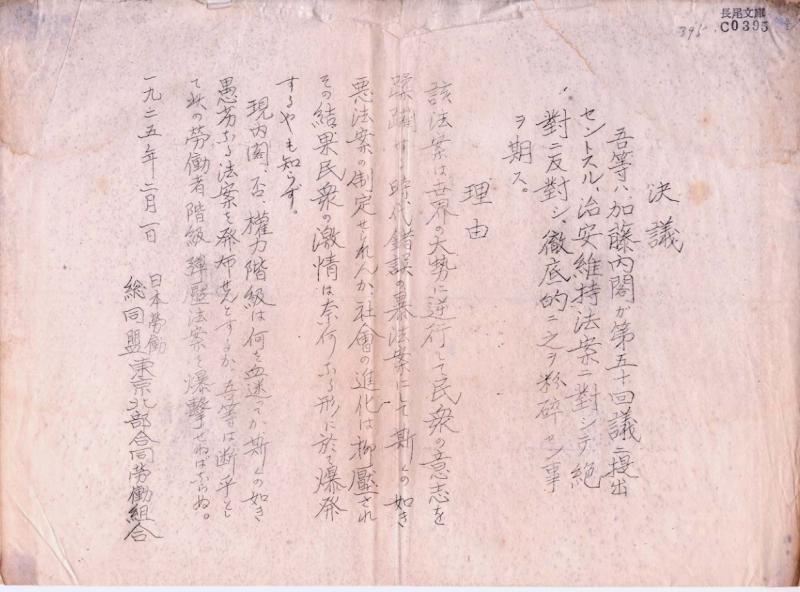 長尾文庫
C0395
395
決議
吾等ハ加藤内閣ガ第五十回議ニ提出
セントスル、治安維持法案ニ對シテ絶
對ニ反對シ、徹底的ニ之ヲ粉碎セン事
ヲ期ス。
理由
該法案は世界の大勢に逆行して民衆の意志を
蹂躙する時代錯誤の暴法案にして斯くの如き
悪法案の制定せられんか、社會の進化は抑壓され
その結果民衆の激情は奈何なる形に於て爆発
するやも知らず。
現内閣、否、權力階級は何を血迷つてか斯くの如き
愚劣なる法案を発布せんとするか、吾等は断乎とし
て此の勞働者階級彈壓法案を爆撃せねばならぬ。
一九二五年二月一日
日本勞働
総同盟東京北部合同勞働組合